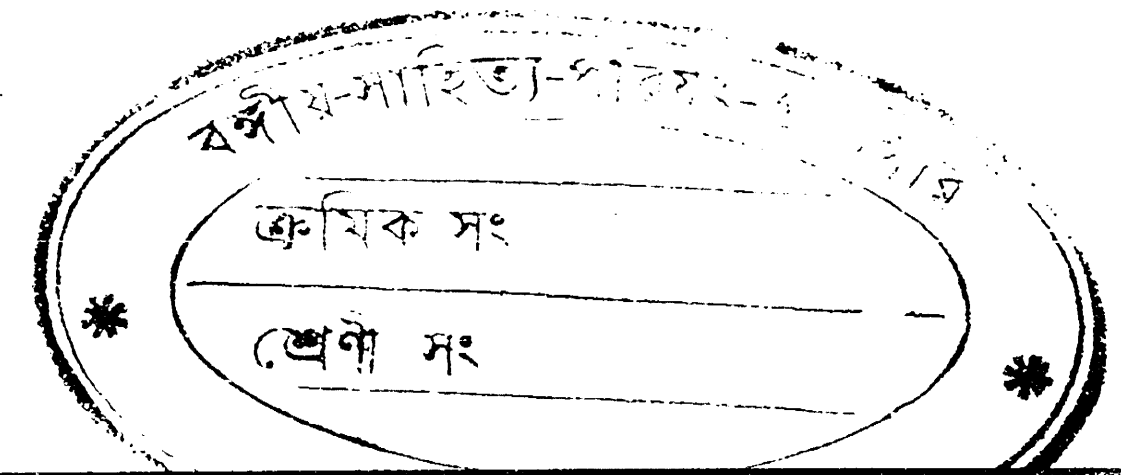 বঙ্গীয়-সাহিত্য-পরিষৎ-
ক্রমিক সং
শ্রেণী সং